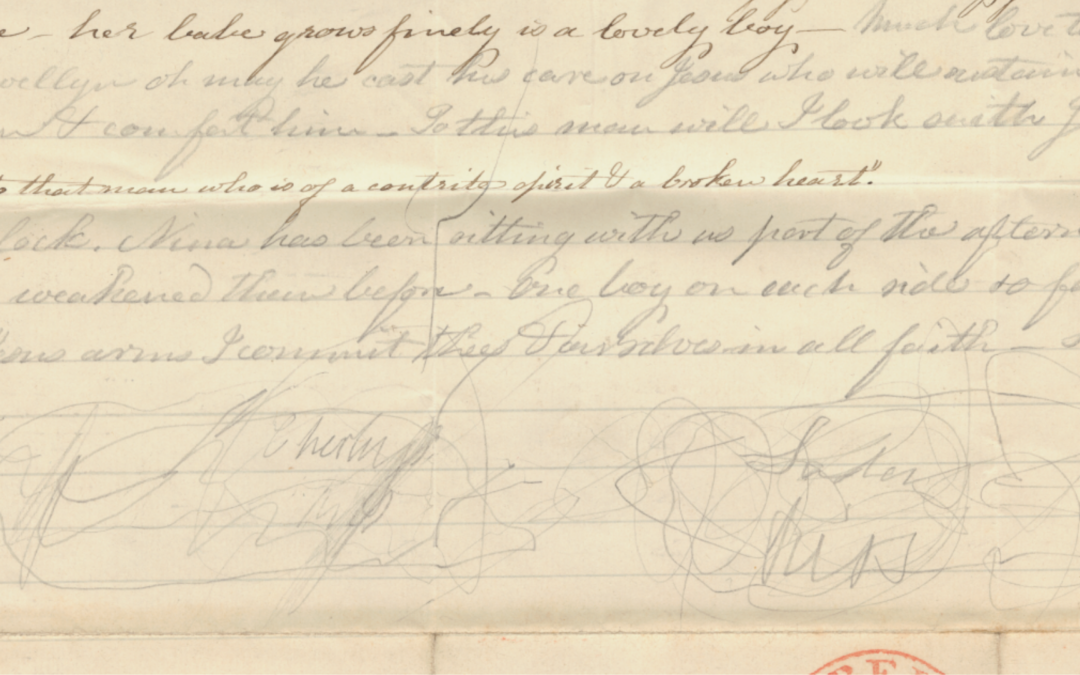 - her babe grows finely is a lovely boy — Much love to
wellyn oh may he cast his care on Jesus who will sustain
& comfort him - To this man will I look saith
that man who is of a contrite spirit & a broken heart".
lock. Nina has been sitting with us part of the aftern
weakened than before - One boy on each side so fa
arms I commit thee & ourselves in all faith -
Sister